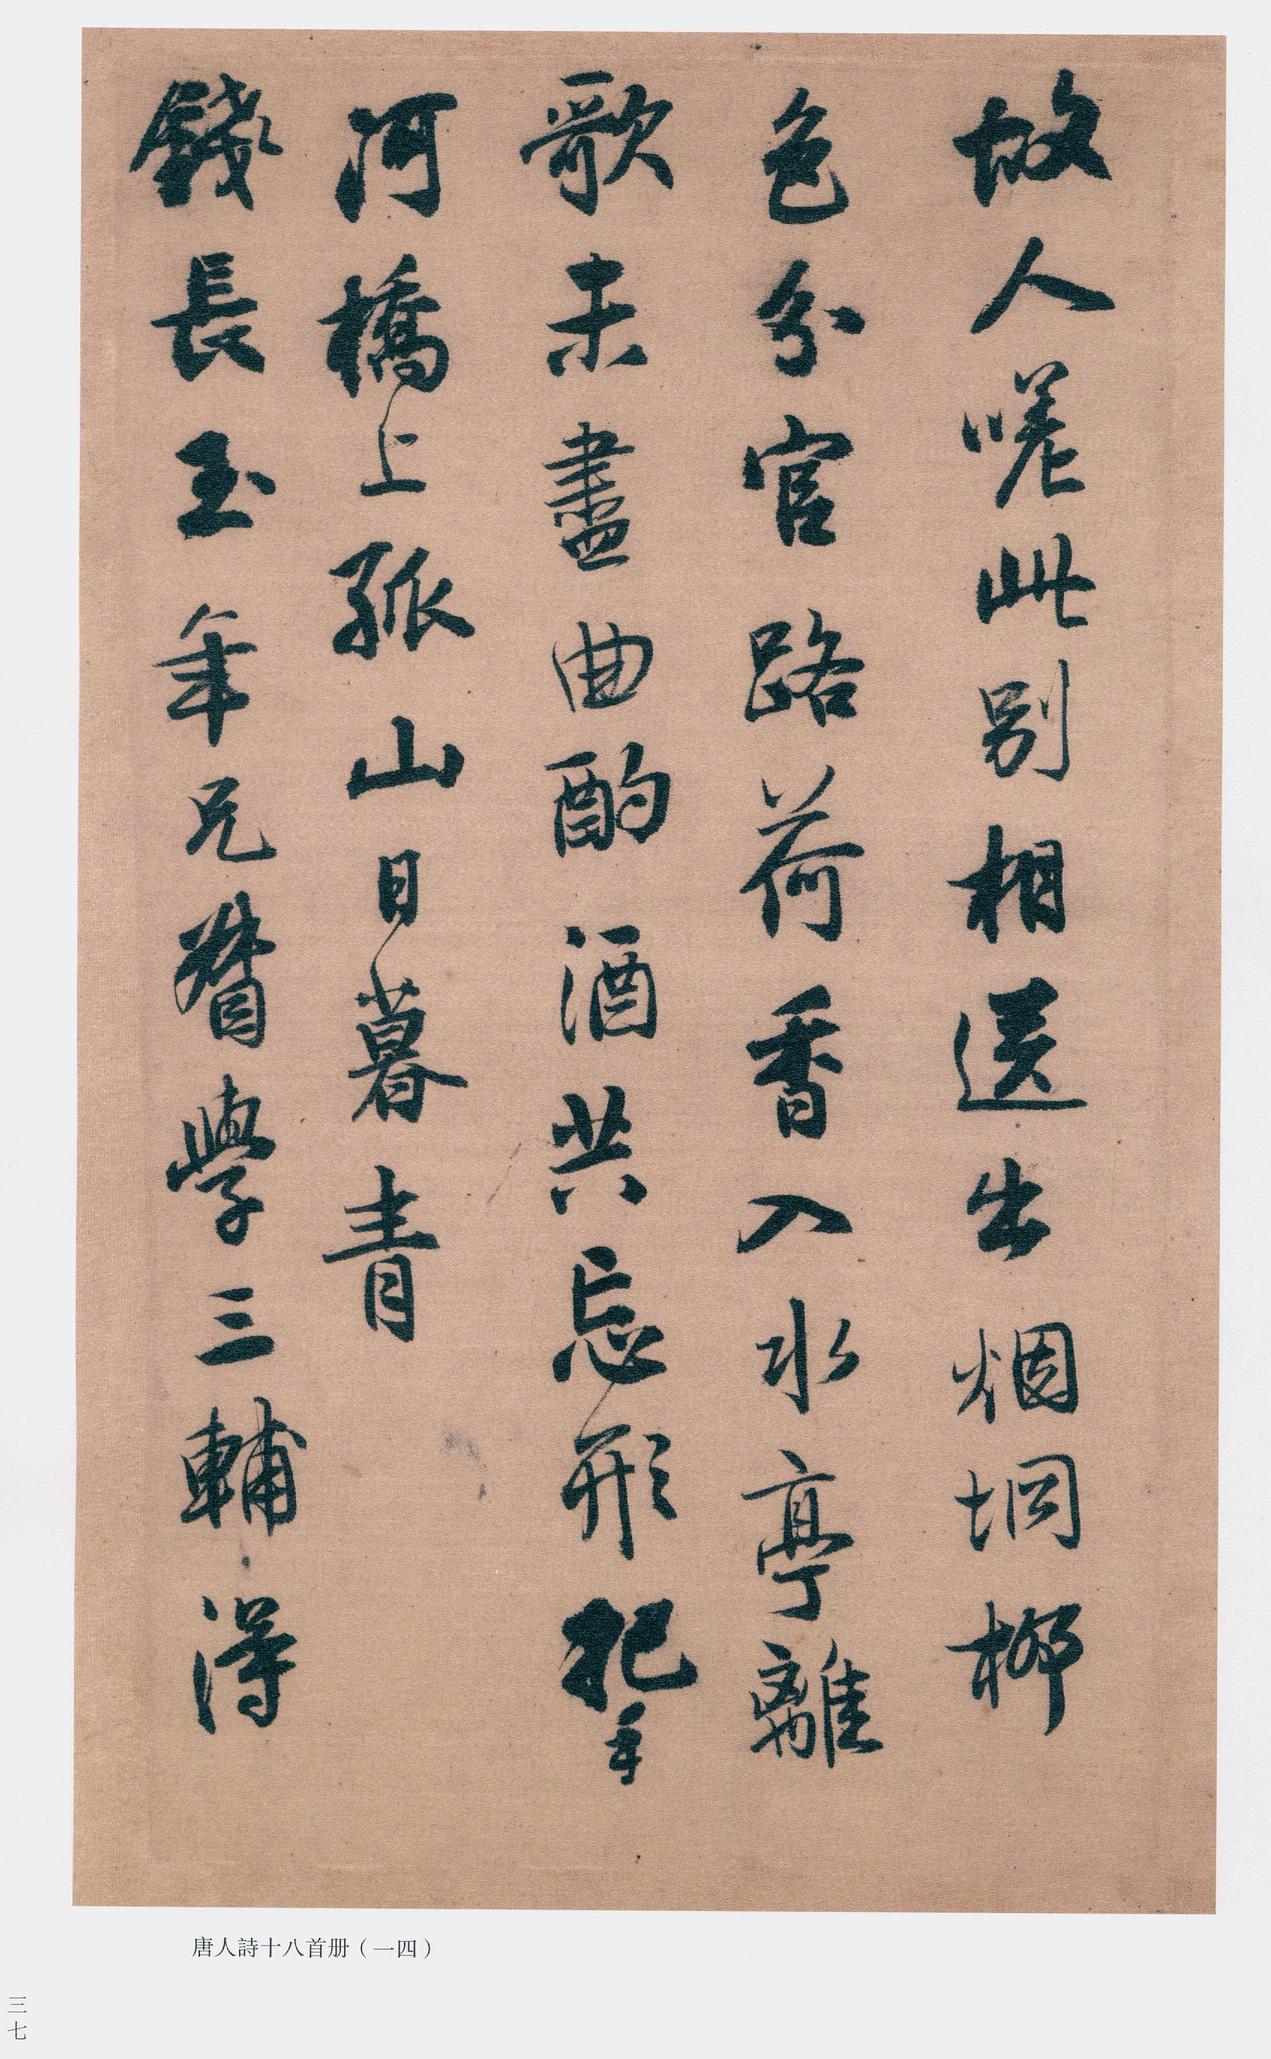 故人嗟此別相送出烟坰柳
色分官路荷香入水亭離
歌未盡曲酌酒共忘形把手
河橋上孤山日暮青
錢長玉年兄督學三輔得
唐人詩十八首册（一四）
三七